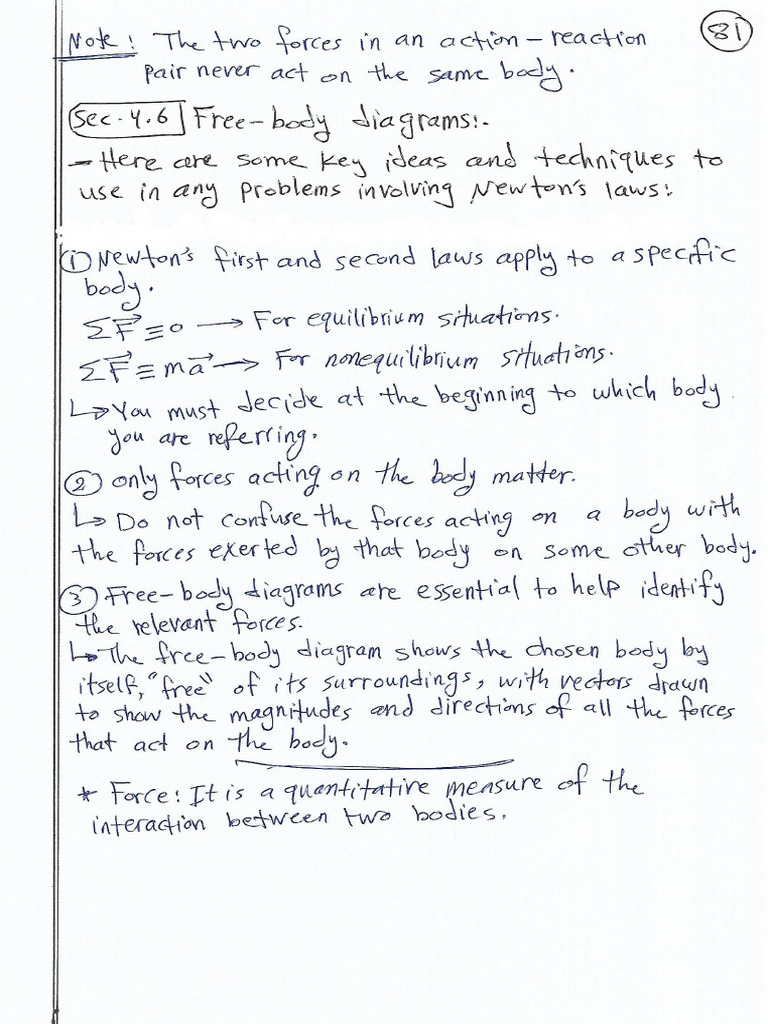 Note: The two forces in an action-reaction
81
pair never act on the same body.
Sec. 4.6 Free-body diagrams:.
- Here are some key ideas and techniques to
use in any problems involving Newton's laws:
① Newton's first and second laws apply to a specific
body.
ΣF⃗ ≡ 0 → For equilibrium situations.
ΣF⃗ ≡ ma⃗ → For nonequilibrium situations.
↳ You must decide at the beginning to which body
you are referring.
② only forces acting on the body matter.
↳ Do not confuse the forces acting on a body with
the forces exerted by that body on some other body.
③ Free-body diagrams are essential to help identify
the relevant forces.
↳ The free-body diagram shows the chosen body by
itself, "free" of its surroundings, with vectors drawn
to show the magnitudes and directions of all the forces
that act on the body.
* Force: It is a quantitative measure of the
interaction between two bodies.